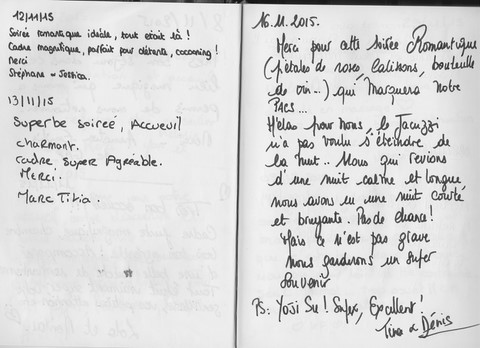 12/11/15
Soirée romantique idéale, tout était là !
Cadre magnifique, parfait pour détente, cocooning !
Merci
Stéphane et Jessica.
13/11/15
Superbe soireé, Accueuil
charmant.
cadre super Agréable.
Merci.
Marc Titia.
16.11.2015.
Merci pour cette soirée Romantique
(pétales de roses, Calissons, bouteille
de vin...) qui Marquera Notre
PACS...
Hélas pour nous, le Jacuzzi
n'a pas voulu s'éteindre de
la nuit.. Nous qui revions
d'une nuit calme et longue
nous avons eu une nuit courte
et bruyante. Pas de chance !
Mais ce n'est pas grave
nous garderons un super
souvenir
PS: Yoji Su ! Super, Excellent !
Tina & Dénis